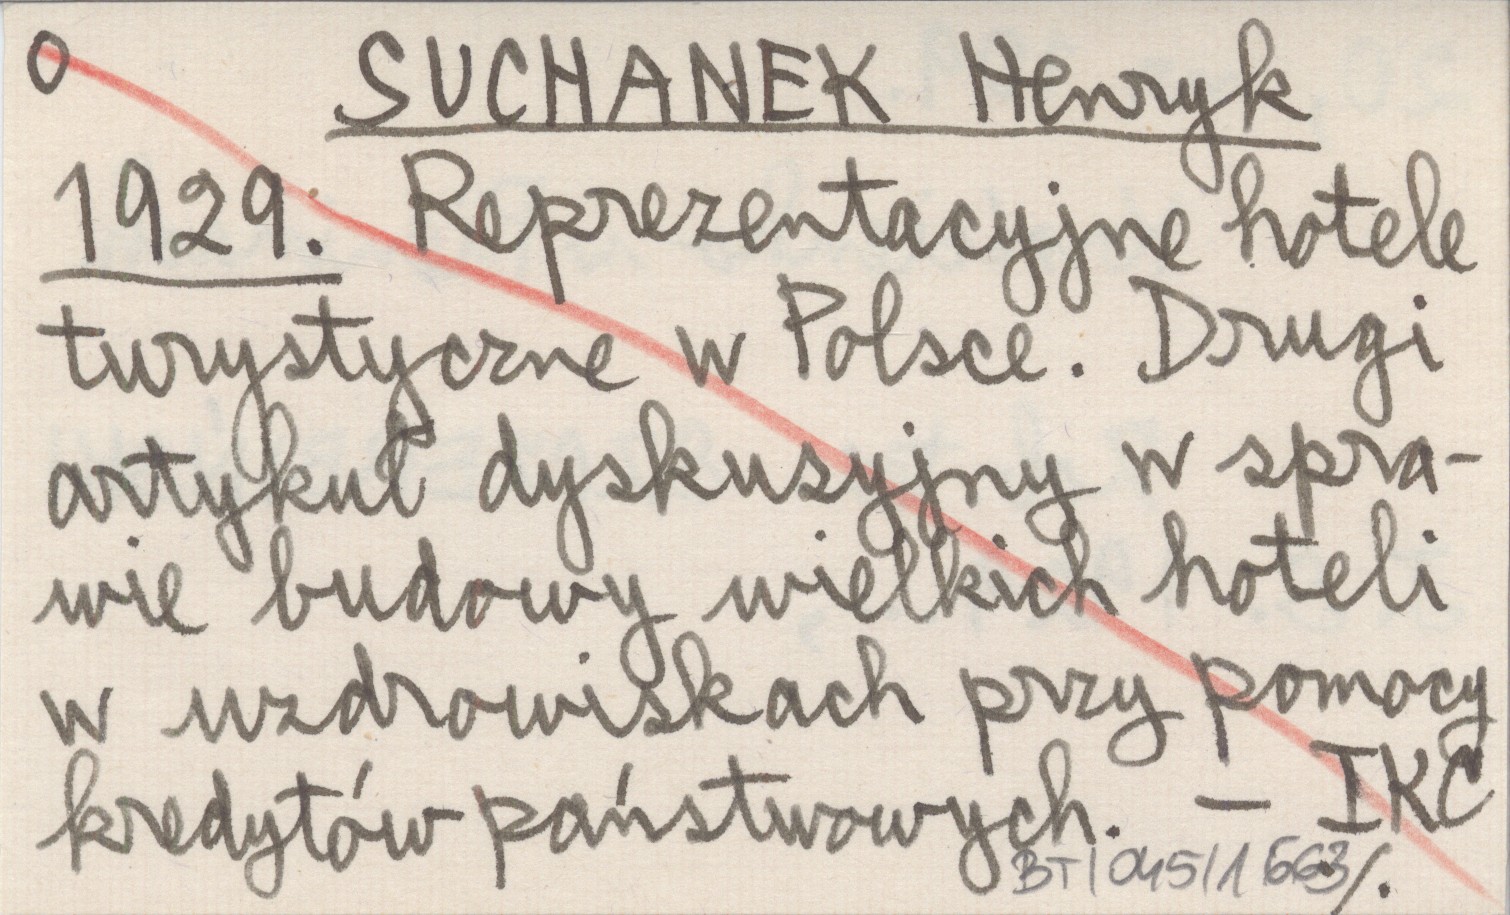 O SUCHANEK Henryk
1929. Reprezentacyjne hotele
turystyczne w Polsce. Drugi
artykuł dyskusyjny w spra-
wie budowy wielkich hoteli
w uzdrowiskach przy pomocy
kredytów państwowych. — IKC
BT/045/1 663/.